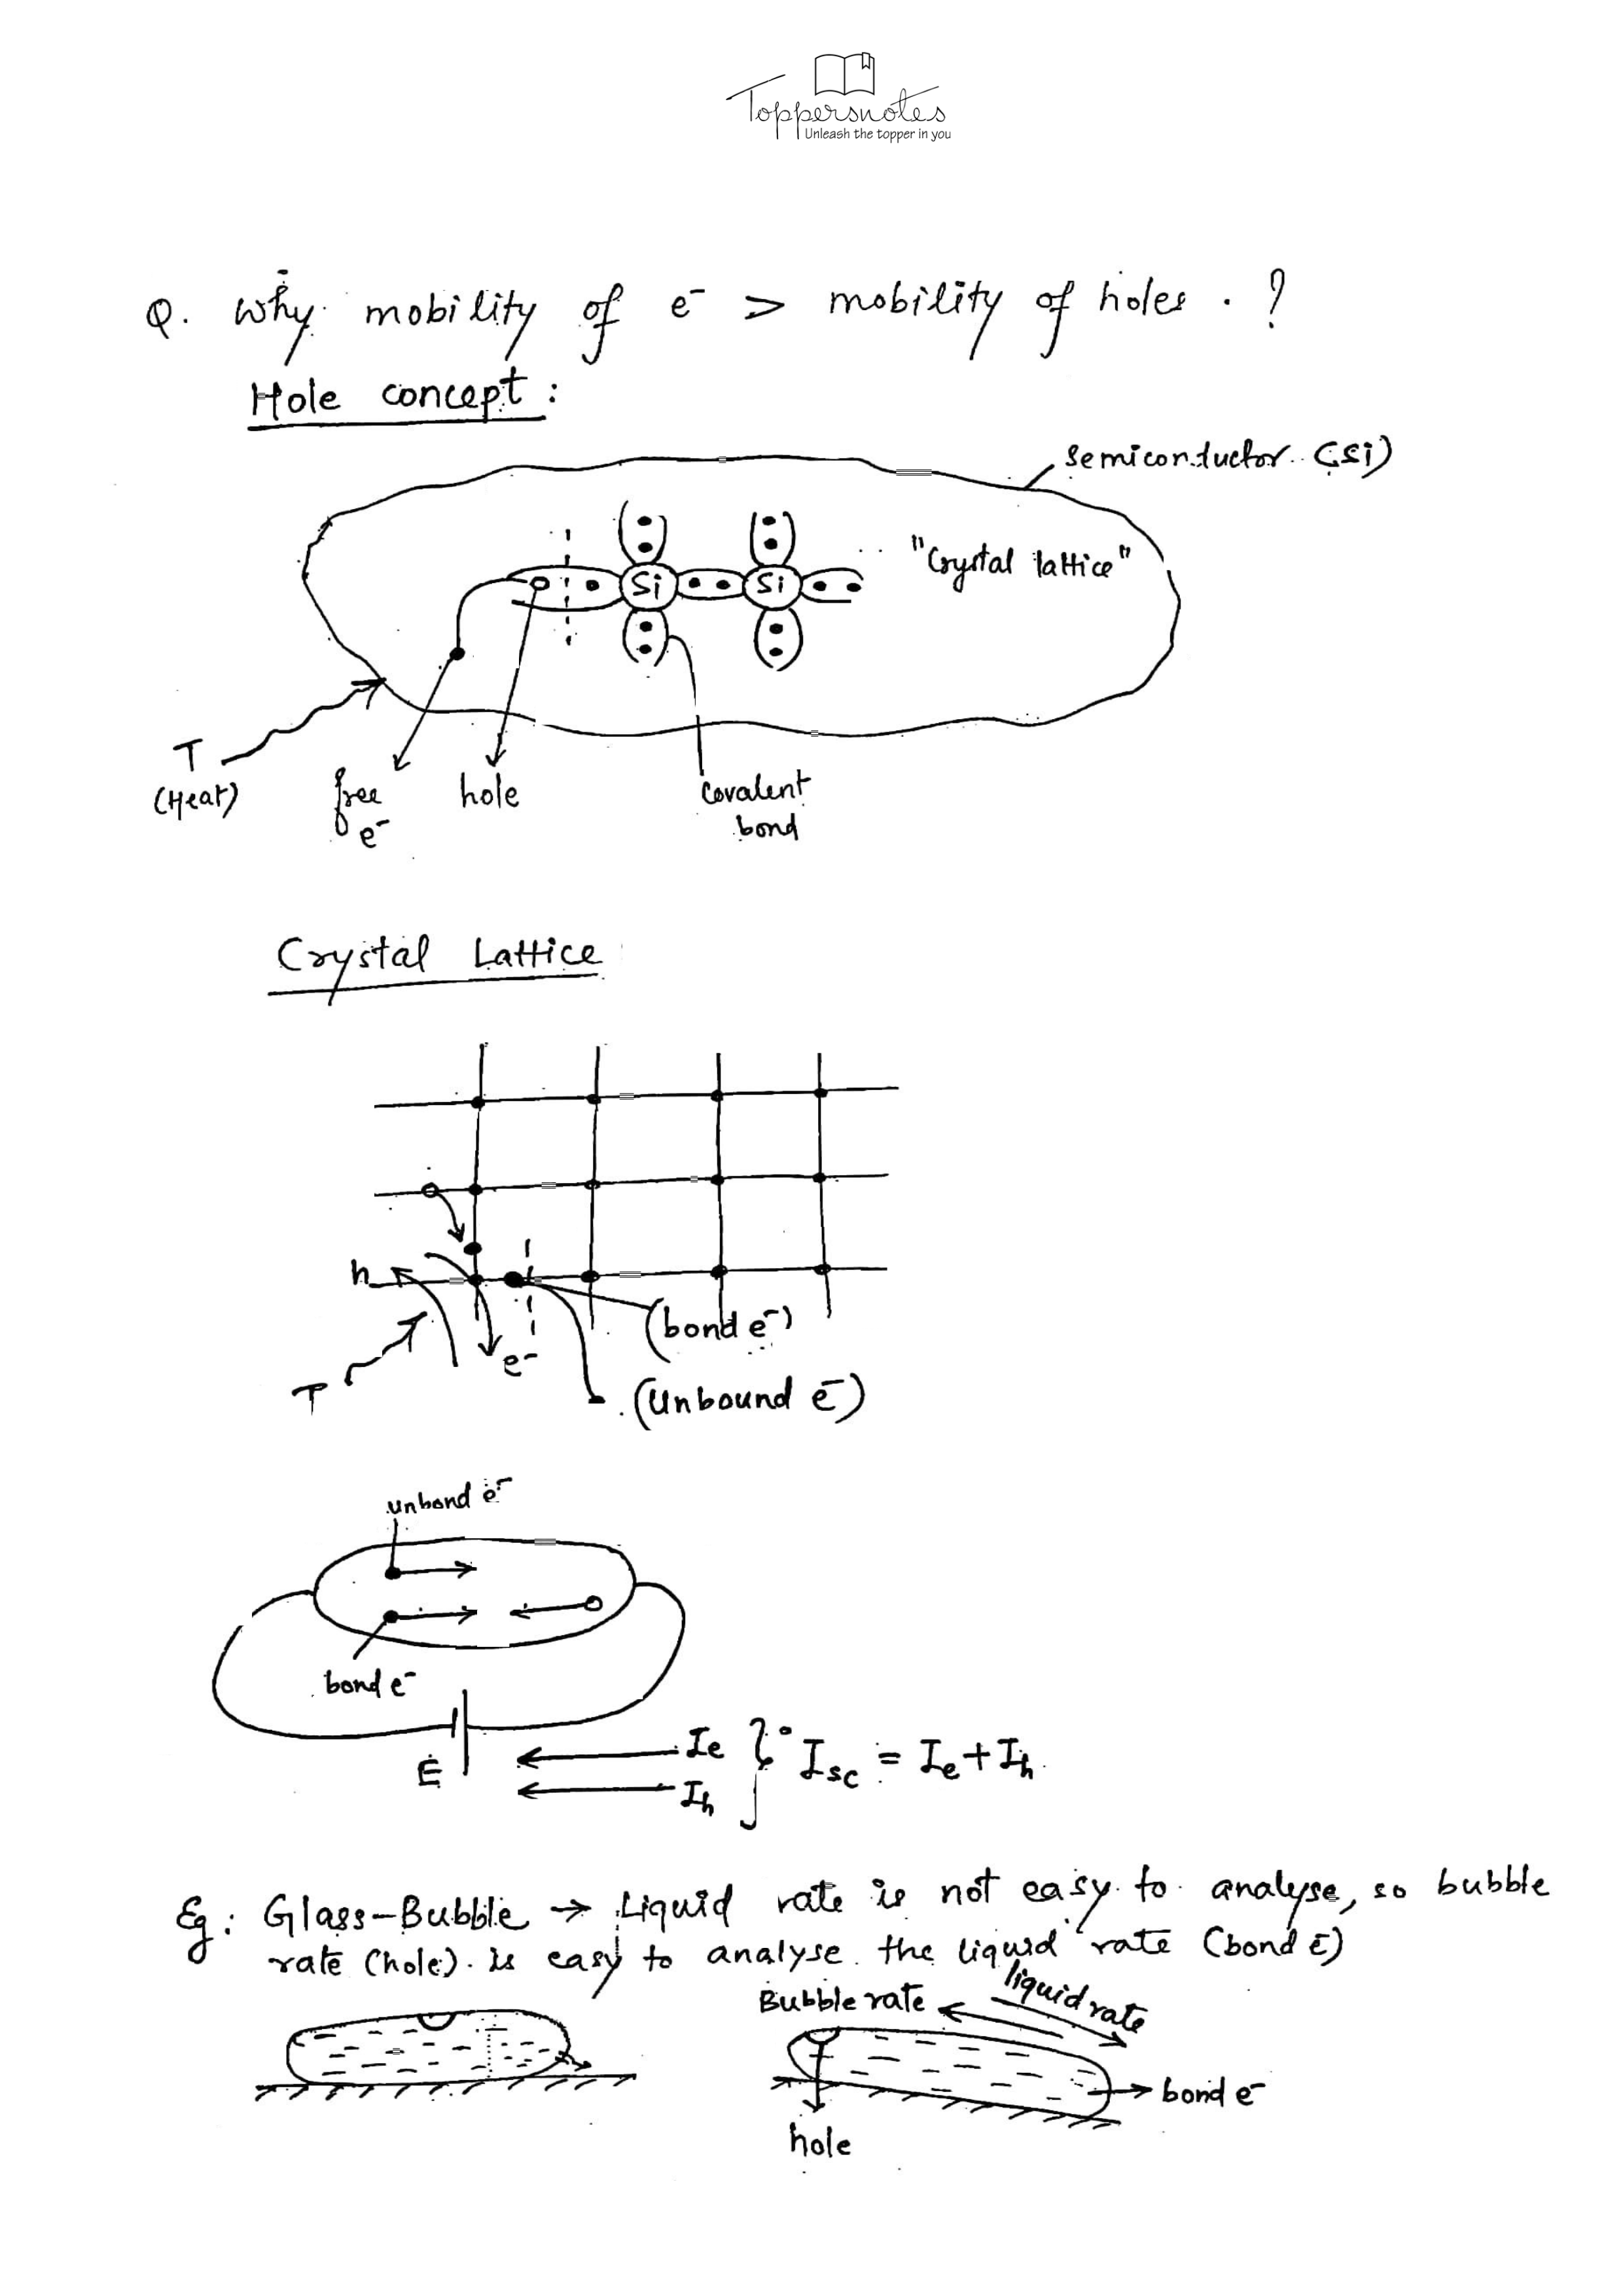 Toppersnotes
Unleash the topper in you
Q. Why mobility of e⁻ > mobility of holes . ?
Hole concept :
Semiconductor (Si)
"Crystal lattice"
Si Si
T
(Heat)
free
e⁻
hole
Covalent
bond
Crystal Lattice
h
(bond e⁻)
e⁻
T
(Unbound e⁻)
unbond e⁻
bond e⁻
E
Ie
Ih
Isc = Ie + Ih
Eg: Glass-Bubble → Liquid rate is not easy to analyse, so bubble
rate (hole) is easy to analyse the liquid rate (bond e⁻)
Bubble rate
liquid rate
bond e⁻
hole